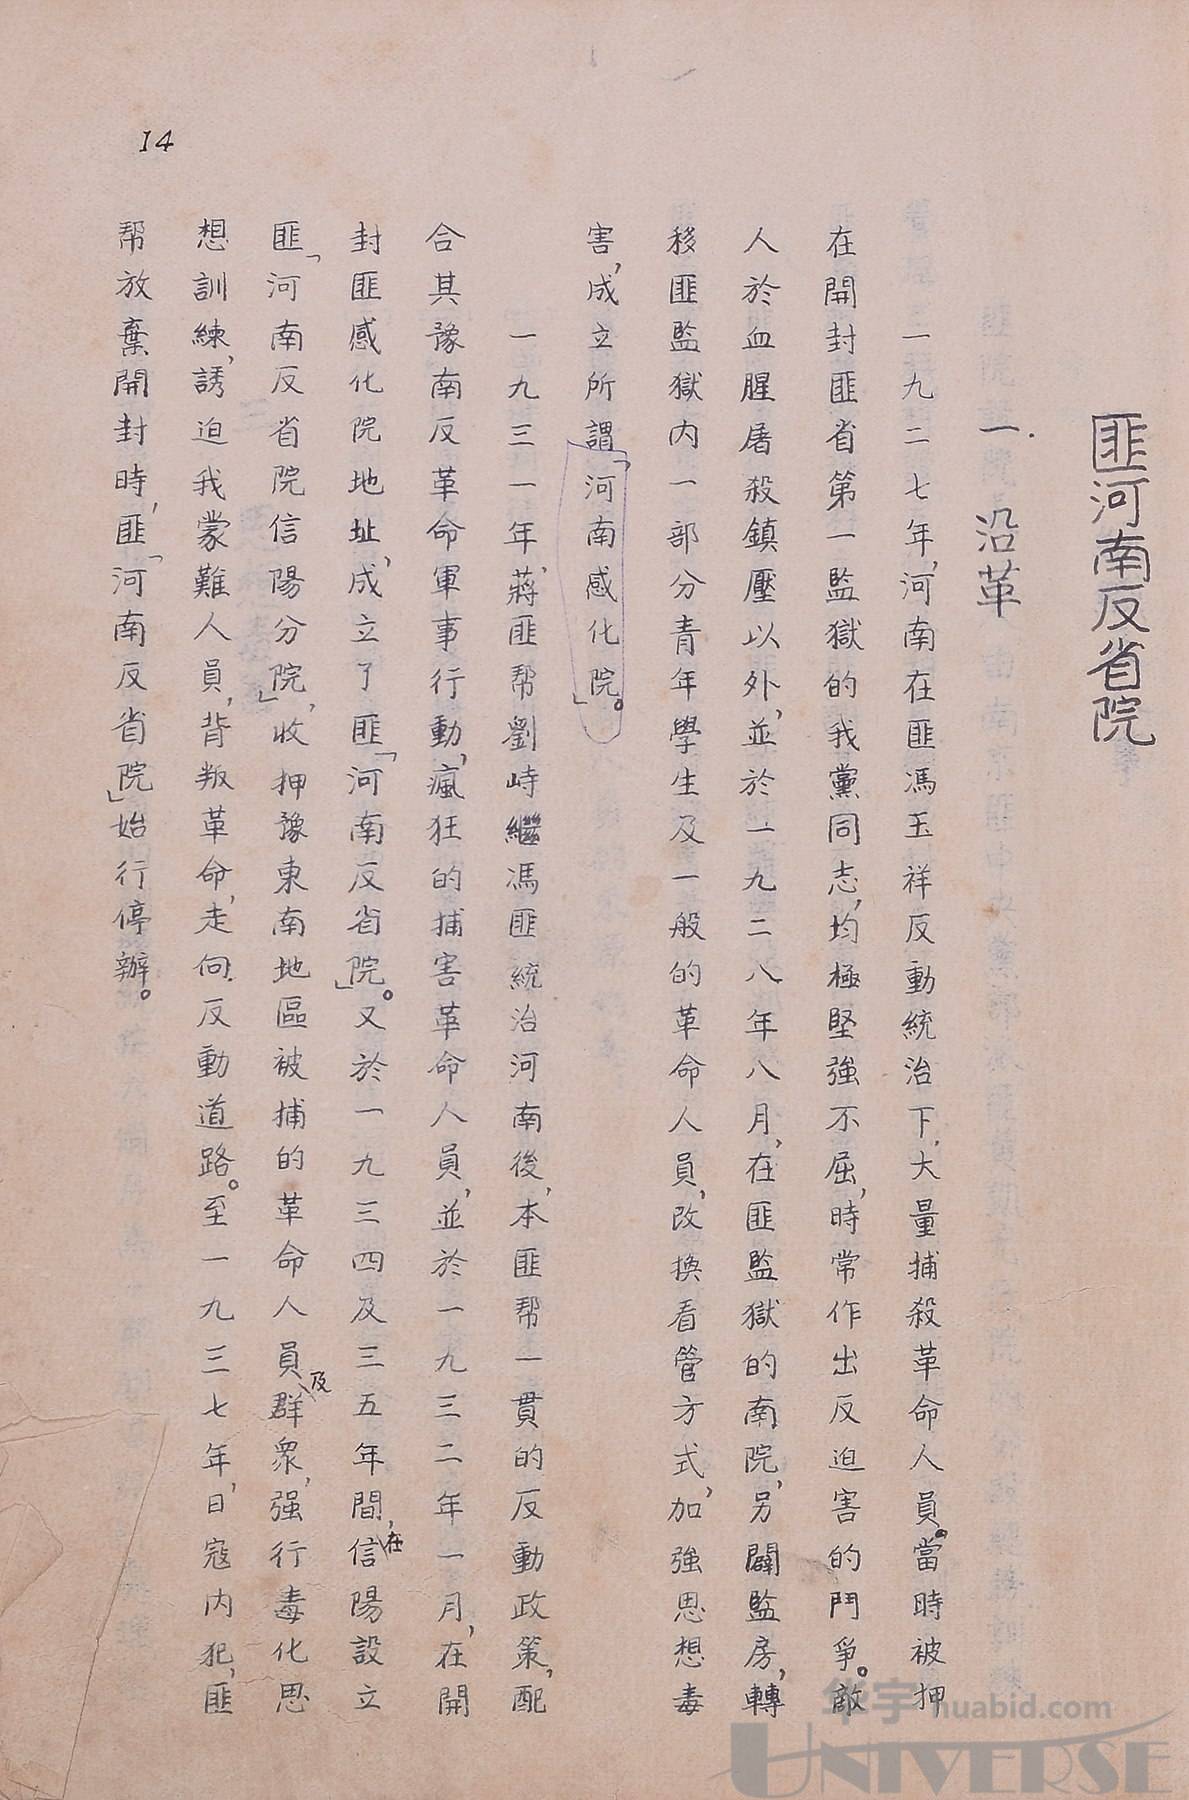 14
匪河南反省院
一.沿革
一九二七年,河南在匪馮玉祥反動統治下,大量捕殺革命人員。當時被押
在開封匪省第一監獄的我黨同志,均極堅強不屈,時常作出反迫害的鬥爭。敵
人於血腥屠殺鎮壓以外,並於一九二八年八月,在匪監獄的南院,另闢監房,轉
移匪監獄内一部分青年學生及一般的革命人員,改換看管方式,加強思想毒
害,成立所謂「河南感化院」。
一九三一年,蔣匪帮劉峙繼馮匪統治河南後,本匪帮一貫的反動政策,配
合其豫南反革命軍事行動,瘋狂的捕害革命人員,並於一九三二年一月,在開
封匪感化院地址,成立了匪「河南反省院」。又於一九三四及三五年間,在信陽設立
匪「河南反省院信陽分院」,收押豫東南地區被捕的革命人員及群衆,强行毒化思
想訓練,誘迫我蒙難人員,背叛革命,走向反動道路。至一九三七年,日寇内犯,匪
帮放棄開封時,匪「河南反省院」始行停辦。
华宇 huabid.com
UNIVERSE